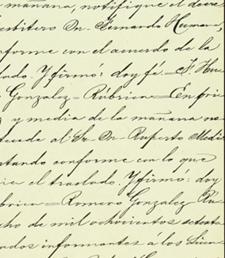 mañana, notifiqué el docu
estitero Dn. Fernando Humana,
nforme con el acuerdo de la
lado. Y firmó: doy fé.=J. Hu
Gonzalez=Rúbrica=En fri
y media de la mañana no
al Sr. Dn. Ruperto Medi
tando conforme con lo que
el traslado. Y firmó: doy
brica=Romero Gonzalez Rú
cho de mil ochocientos setenta
ados informantes á los Licen